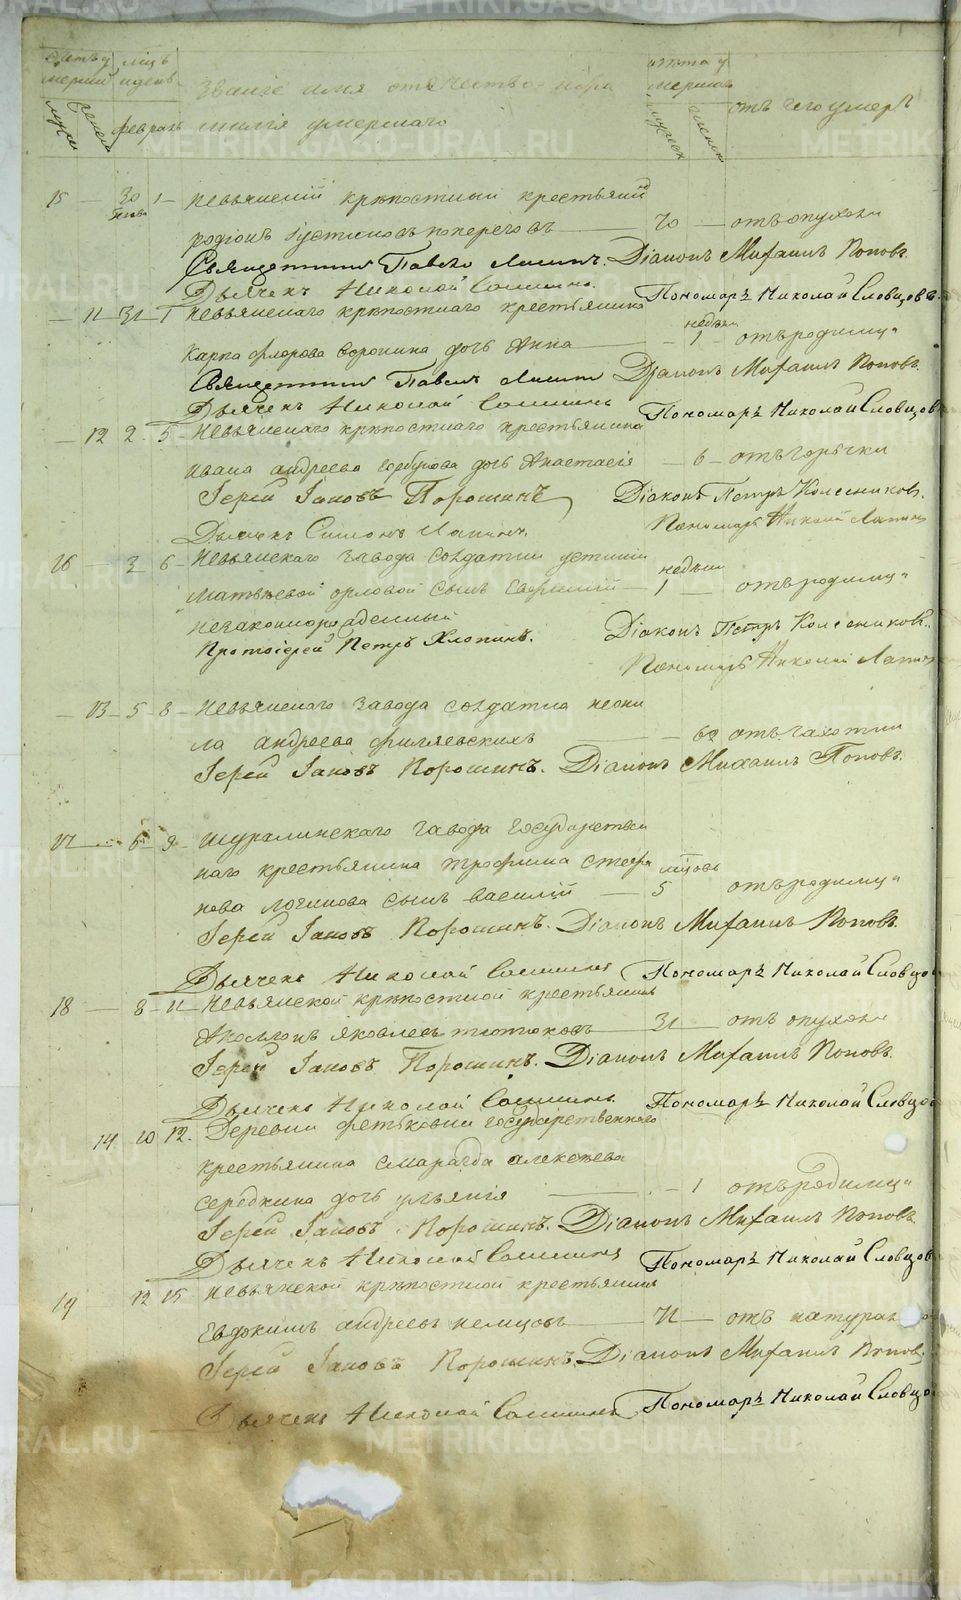 METRIKI.GASO-URAL.RU
счетъ умерши
мцъ и день
званіе имя отечество и фамилія умершаго
лѣта умершаго
отъ чего умеръ
февраль
15 — 30 1 — Невьянскій крѣпостный крестьянинъ
Родіонъ Устиновъ Поперековъ — 70 — отъ опухоли
Священникъ Павелъ Діаконъ Михаилъ Поповъ.
Дьячекъ Николай Пономарь Николай Словцовъ.
— 11 — 31 — 1 Невьянскаго крѣпостнаго крестьянина
недѣли
Карпа Флорова Воронина дочь Анна — 1 — отъ родимца
Священникъ Павелъ Діаконъ Михаилъ Поповъ.
Дьячекъ Николай Пономарь Николай Словцовъ
— 12 2 — 5 — Невьянскаго крѣпостнаго крестьянина
Ивана Андреева Горбунова дочь Анастасія — 6 — отъ горячки
Іерей Іаковъ Порошинъ Діаконъ Петръ Колесниковъ.
Дьячекъ Симонъ Лапинъ. Пономарь Николай Лапинъ
16 — 3 6 — Невьянскаго завода солдатки Устиніи
недели
Матвѣевой Орловой сынъ Евгеній — 1 — отъ родимца
незаконнорожденный
Протоіерей Петръ Хлопинъ. Діаконъ Петръ Колесниковъ.
Пономарь Николай Лапинъ
— 13 — 5 — 8 — Невьянскаго завода солдатка Неони
ла Андреева Филяевскихъ — 60 отъ чахотки
Іерей Іаковъ Порошинъ. Діаконъ Михаилъ Поповъ.
17 — 6 — 9 — Шуралинскаго завода государствен
наго крестьянина Трофима Стефа мцовъ
нова Логинова сынъ Василій — 5 отъ родимца
Іерей Іаковъ Порошинъ. Діаконъ Михаилъ Поповъ.
Дьячекъ Николай Пономарь Николай Словцовъ
18 — 8 — 11 — Невьянской крѣпостной крестьянинъ
Яковлевъ Тютюковъ — 31 — отъ опухоли
Іерей Іаковъ Порошинъ. Діаконъ Михаилъ Поповъ.
Дьячекъ Николай Пономарь Николай Словцовъ
14. 10 12. Деревни Фетьковки государственнаго
крестьянина Смарагда Алексѣева
Середкина дочь Ульянія — 1 отъ родимца
Іерей Іаковъ Порошинъ. Діаконъ Михаилъ Поповъ.
Дьячекъ Николай Пономарь Николай Словцовъ
19 12 15 Невьянской крѣпостной крестьянинъ
Евдокимъ Андреевъ Немцовъ — 71 — отъ натуральной
Іерей Іаковъ Порошинъ. Діаконъ Михаилъ Поповъ.
Дьячекъ Николай Пономарь Николай Словцовъ